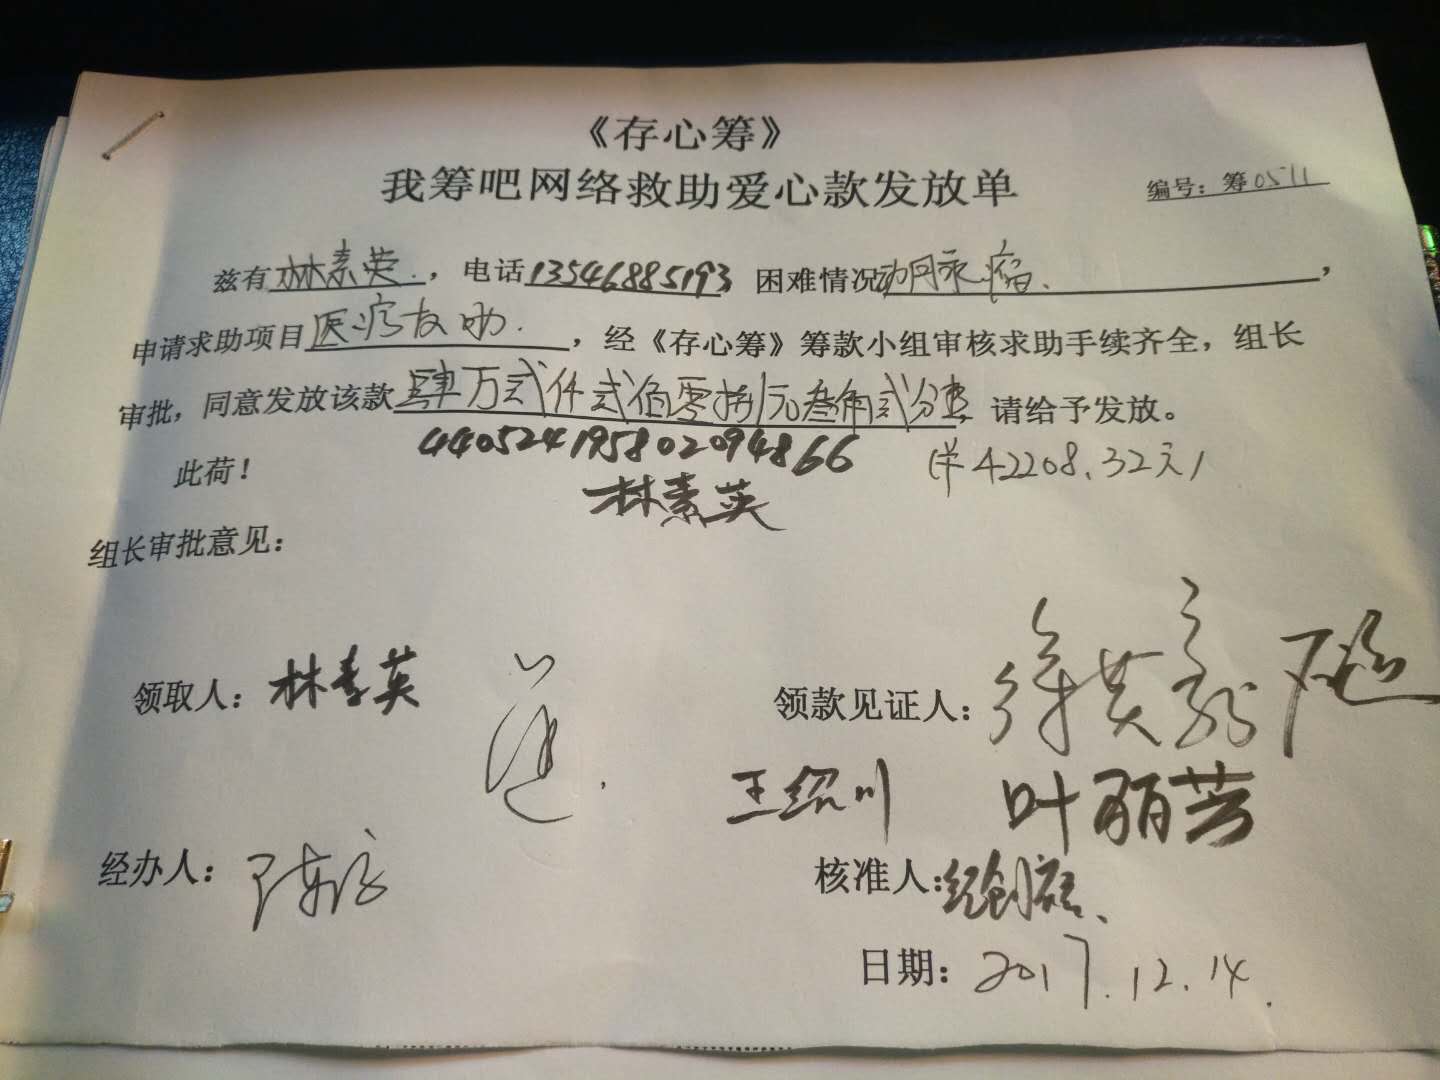 《存心筹》
我筹吧网络救助爱心款发放单
编号：筹0511
兹有林素英，电话13546885193 困难情况动脉瘤，
申请求助项目医疗救助，经《存心筹》筹款小组审核求助手续齐全，组长
审批，同意发放该款肆万贰仟贰佰零捌元叁角贰分，请给予发放。
440524195802094866
此荷！
(￥42208.32元)
林素英
组长审批意见：
领取人：林素英
领款见证人：
王绍川 叶丽芳
经办人：
核准人：
日期：2017.12.14.